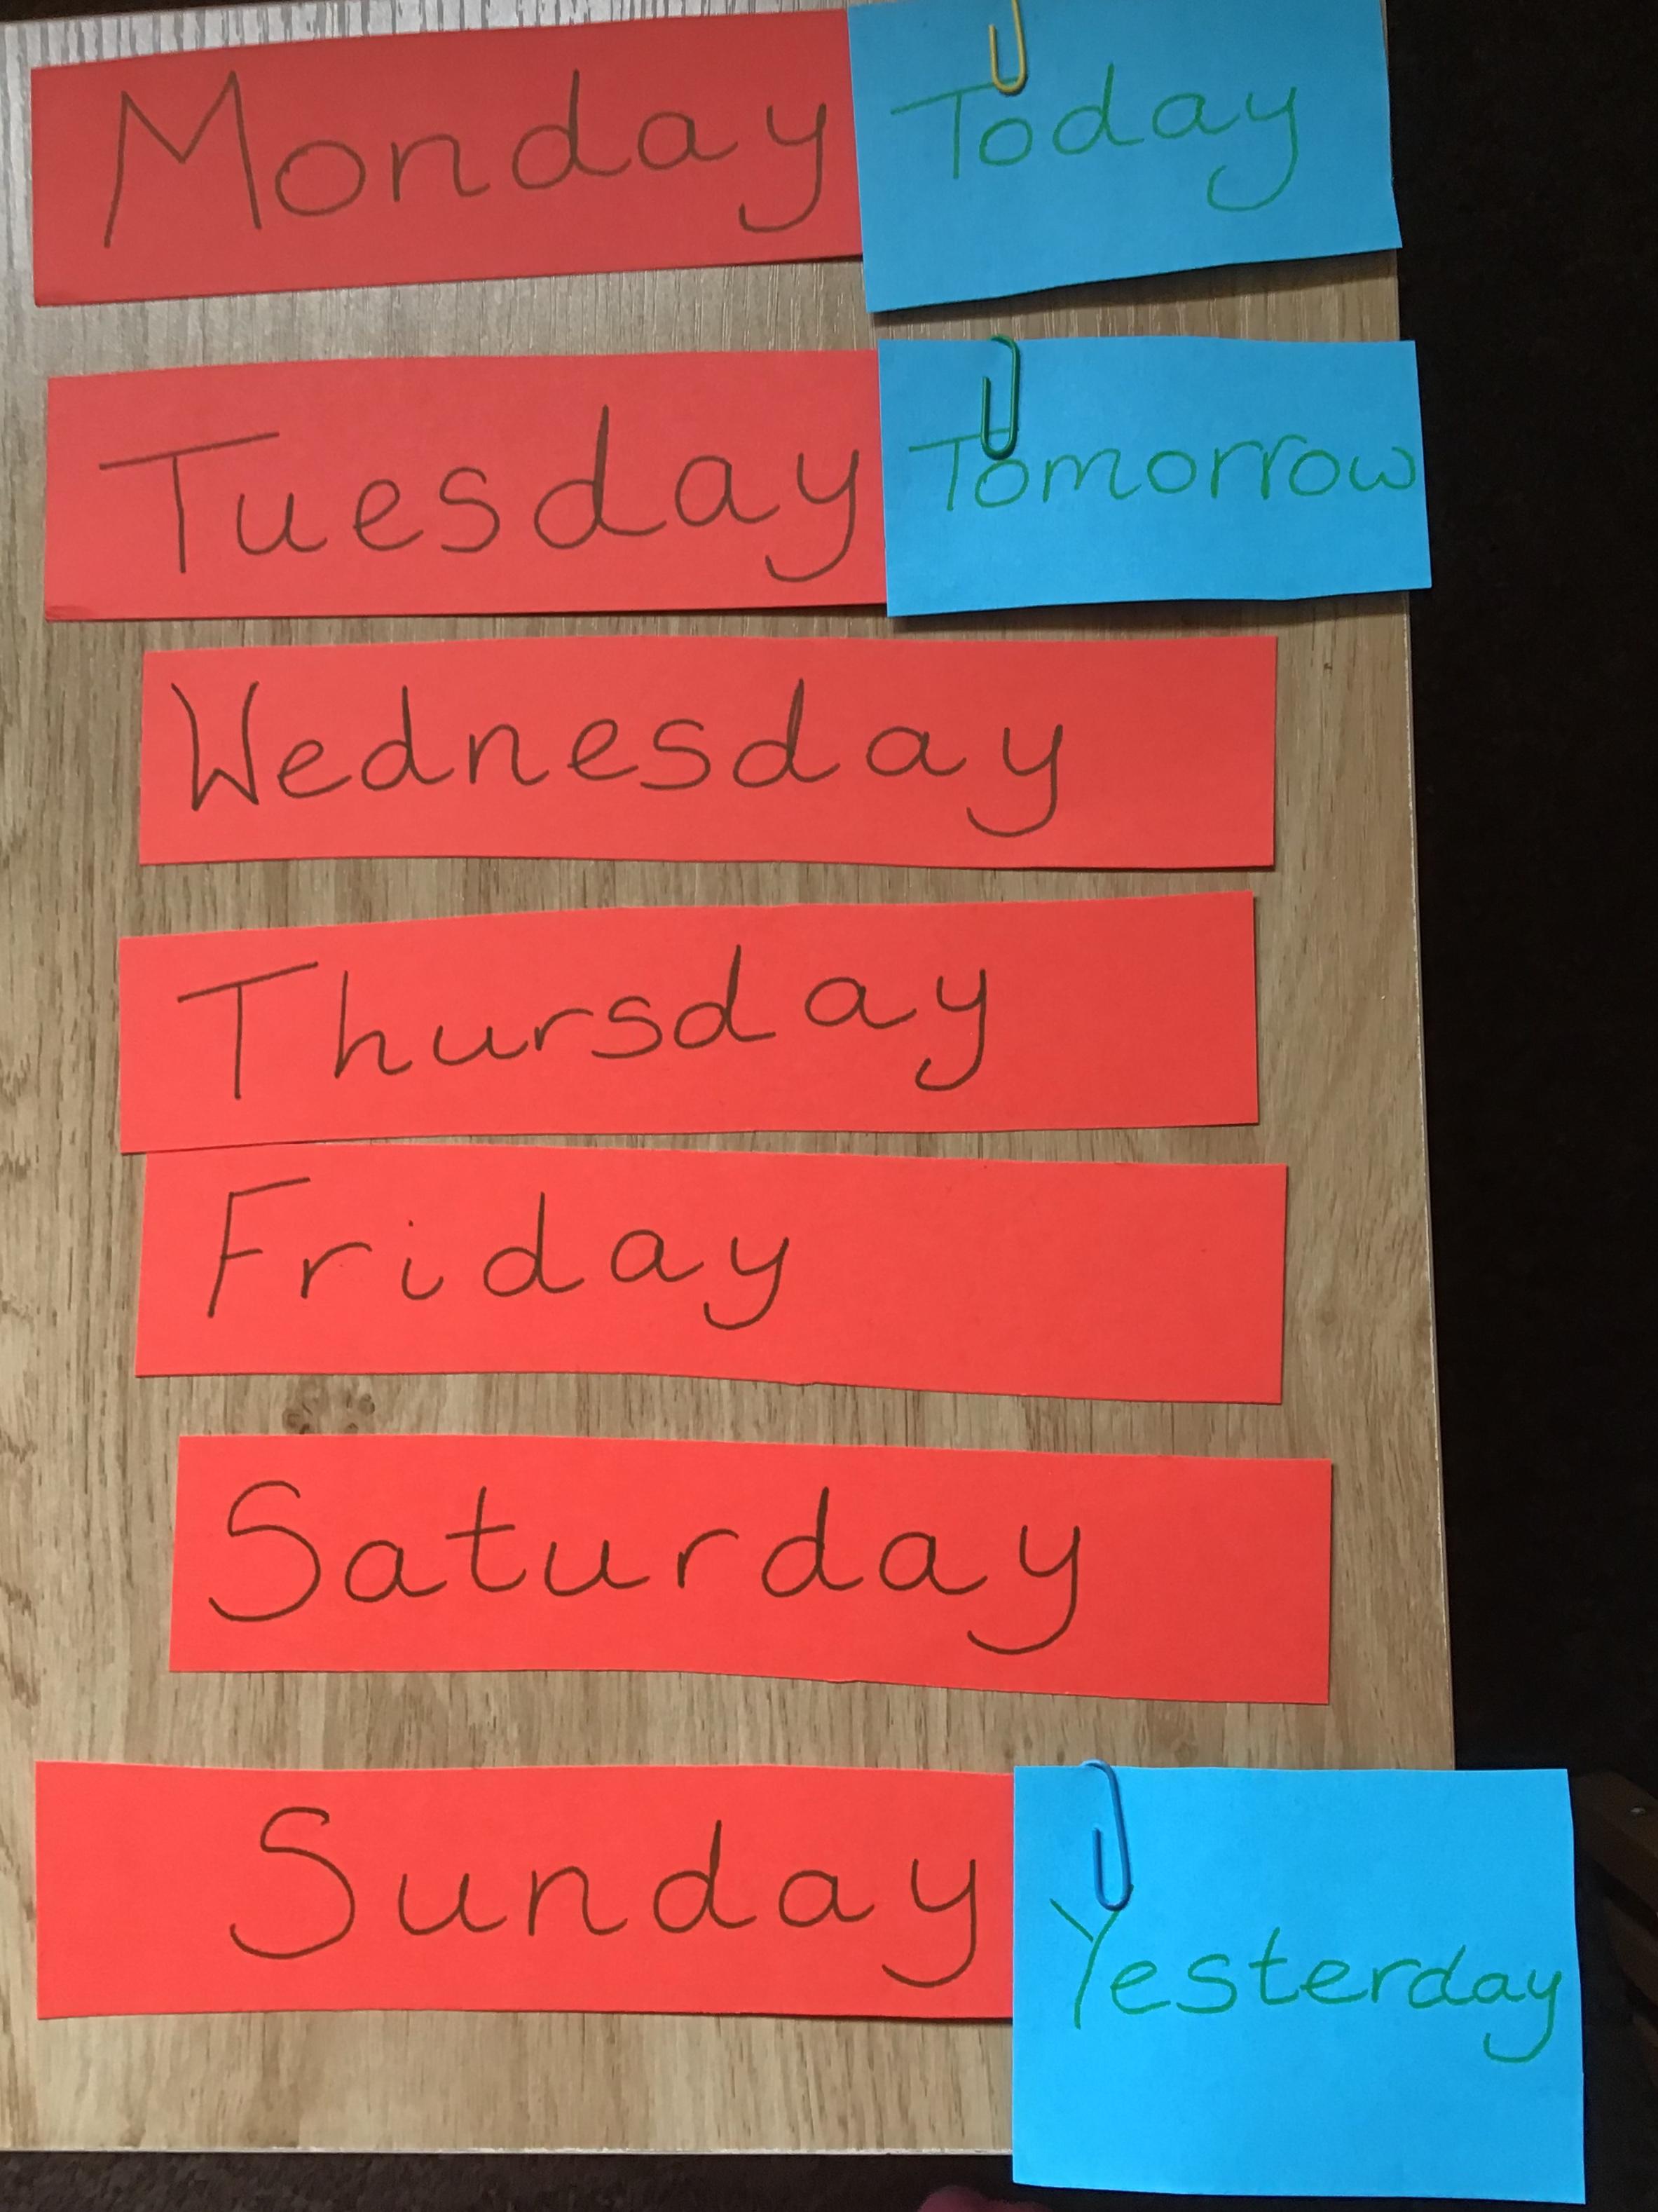 Monday Today
Tuesday Tomorrow
Wednesday
Thursday
Friday
Saturday
Sunday Yesterday